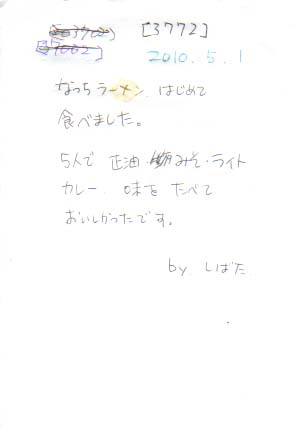 [3772]
2010.5.1
なっちラーメン はじめて
食べました。
5人で 正油 みそ・ライト
カレー 味を たべて
おいしかったです。
by しばた